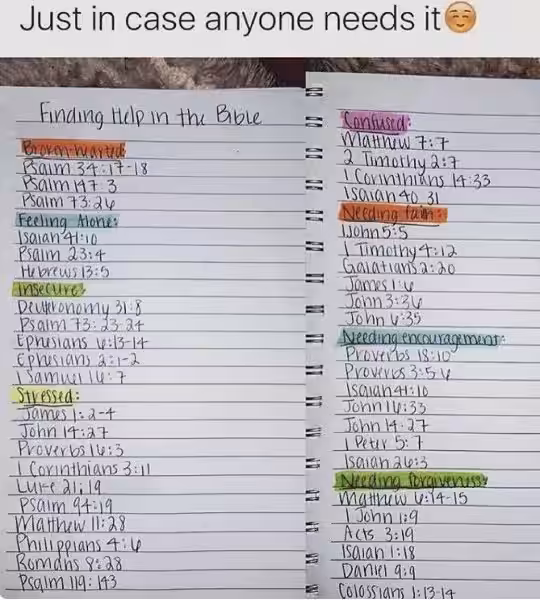 Just in case anyone needs it☺️
Finding Help in the Bible
Broken-hearted
Psalm 34:17-18
Psalm 147:3
Psalm 73:26
Feeling Alone:
Isaiah 41:10
Psalm 23:4
Hebrews 13:5
Insecure:
Deuteronomy 31:8
Psalm 73:23-24
Ephesians 6:13-14
Ephesians 2:1-2
1 Samuel 16:7
Stressed:
James 1:2-4
John 14:27
Proverbs 16:3
1 Corinthians 3:11
Luke 21:19
Psalm 94:19
Matthew 11:28
Philippians 4:6
Romans 8:28
Psalm 119:143
Confused:
Matthew 7:7
2 Timothy 2:7
1 Corinthians 14:33
Isaiah 40 31
Needing faith:
1 John 5:5
1 Timothy 4:12
Galatians 2:20
James 1:6
John 3:36
John 6:35
Needing encouragement:
Proverbs 18:10
Proverbs 3:5 6
Isaiah 41:10
John 16:33
John 14:27
1 Peter 5:7
Isaiah 26:3
Needing forgiveness
Matthew 6:14-15
1 John 1:9
Acts 3:19
Isaiah 1:18
Daniel 9:9
Colossians 1:13-14